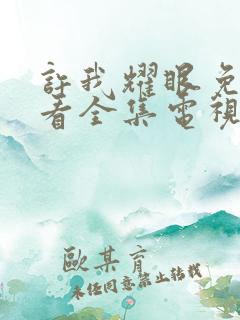 許我耀眼免
看全集電視
歐某育
未经同意禁止转载